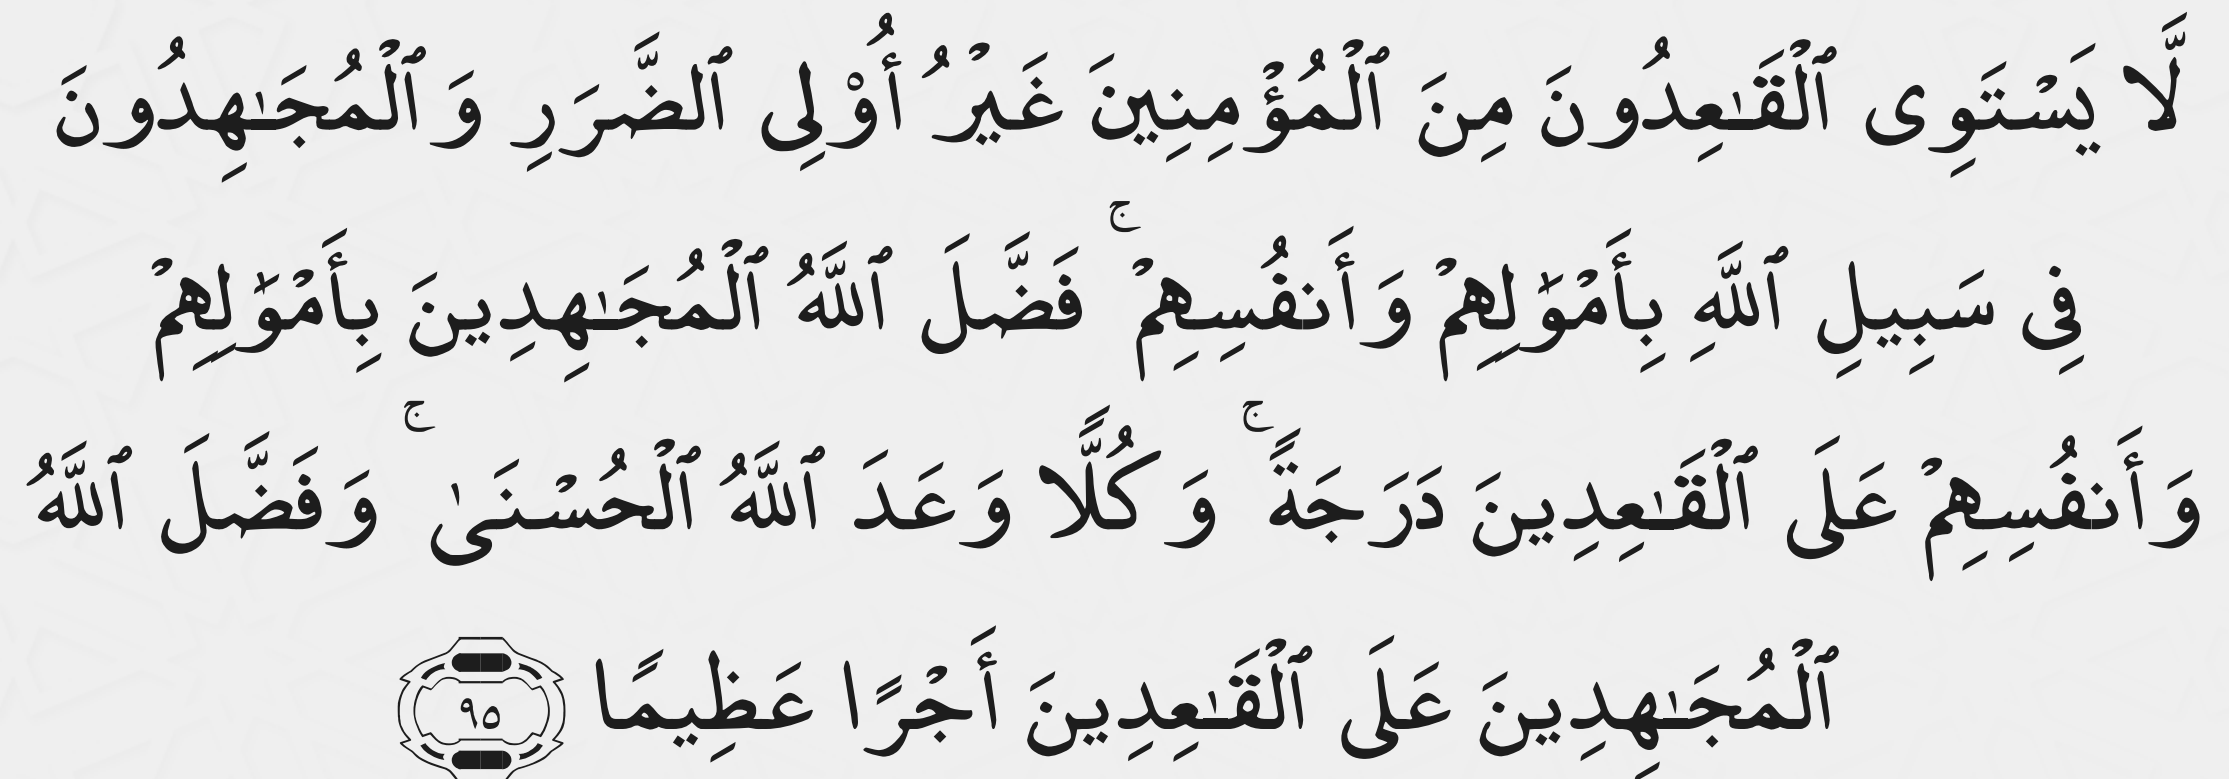 لَّا يَسْتَوِى ٱلْقَـٰعِدُونَ مِنَ ٱلْمُؤْمِنِينَ غَيْرُ أُو۟لِى ٱلضَّرَرِ وَٱلْمُجَـٰهِدُونَ
فِى سَبِيلِ ٱللَّهِ بِأَمْوَٰلِهِمْ وَأَنفُسِهِمْ ۚ فَضَّلَ ٱللَّهُ ٱلْمُجَـٰهِدِينَ بِأَمْوَٰلِهِمْ
وَأَنفُسِهِمْ عَلَى ٱلْقَـٰعِدِينَ دَرَجَةًۭ ۚ وَكُلًّۭا وَعَدَ ٱللَّهُ ٱلْحُسْنَىٰ ۚ وَفَضَّلَ ٱللَّهُ
ٱلْمُجَـٰهِدِينَ عَلَى ٱلْقَـٰعِدِينَ أَجْرًا عَظِيمًۭا ٩٥